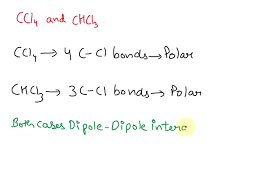 CCl₄ and CHCl₃
CCl₄ → 4 C-Cl bonds → Polar
CHCl₃ → 3 C-Cl bonds → Polar
Both cases Dipole-Dipole interc